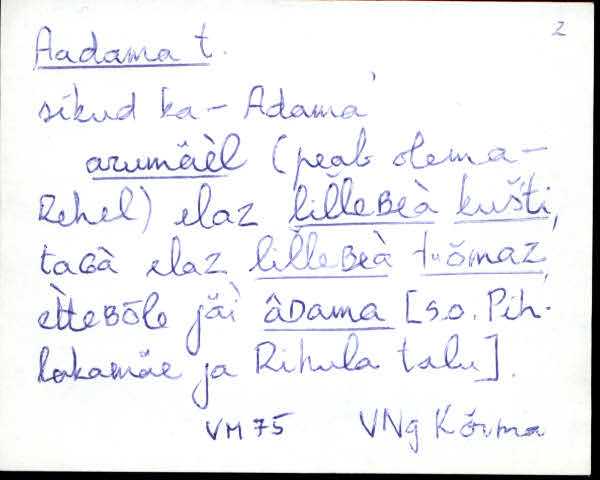 2
Aadama t.
sikud ka - Adama'
arumäèl (peab olema -
Rehel) elaz lilleʙeà kušti,
taɢà elaz lilleʙeà tuŏmaz,
ètteʙōle jäì âᴅama [s.o. Pih-
lakamäe ja Rihula talu].
VM 75 VNg Kõrma